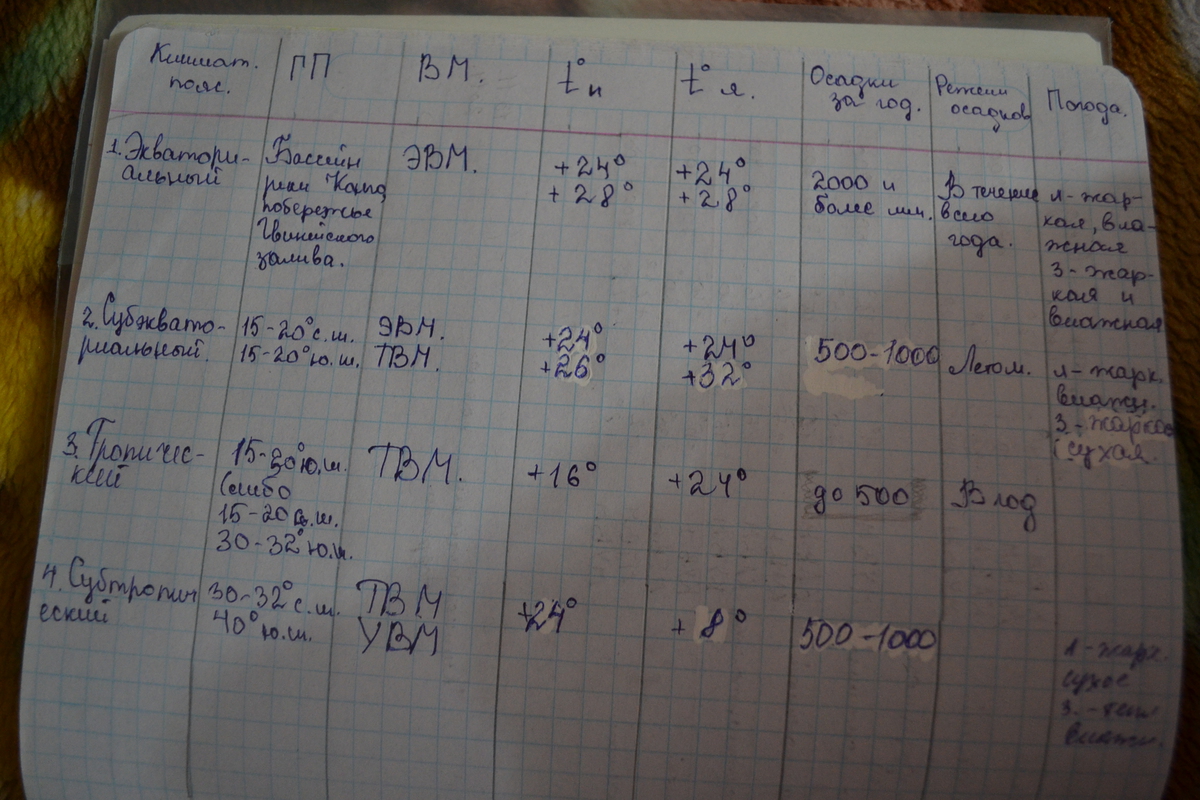 Климат. пояс. ГП ВМ. t° и t° я. Осадки за год. Режим осадков Погода.
1. Экватори-
альный
Бассейн
реки Конго
побережье
Гвинейского
залива.
ЭВМ.
+24°
+28°
+24°
+28°
2000 и
более мм.
В течение
всего
года.
л- жар-
кая, вла-
жная
З- жар-
кая и
влажная
2. Субэквато-
риальный.
15-20° с.ш.
15-20° ю.ш.
ЭВМ.
ТВМ.
+24°
+26°
+24°
+32°
500-1000
Летом.
л- жарк.
влажн.
З.- жаркая
сухая.
3. Тропичес-
кий
15-20° ю.ш.
15-20 с.ш.
30-32° ю.ш.
ТВМ.
+16°
+24°
до 500
В год
4. Субтропич
еский
30-32° с.ш.
40° ю.ш.
ТВМ
УВМ
+24°
+ 8°
500-1000
л- жарк.
сухое
З. - теп
влажн.